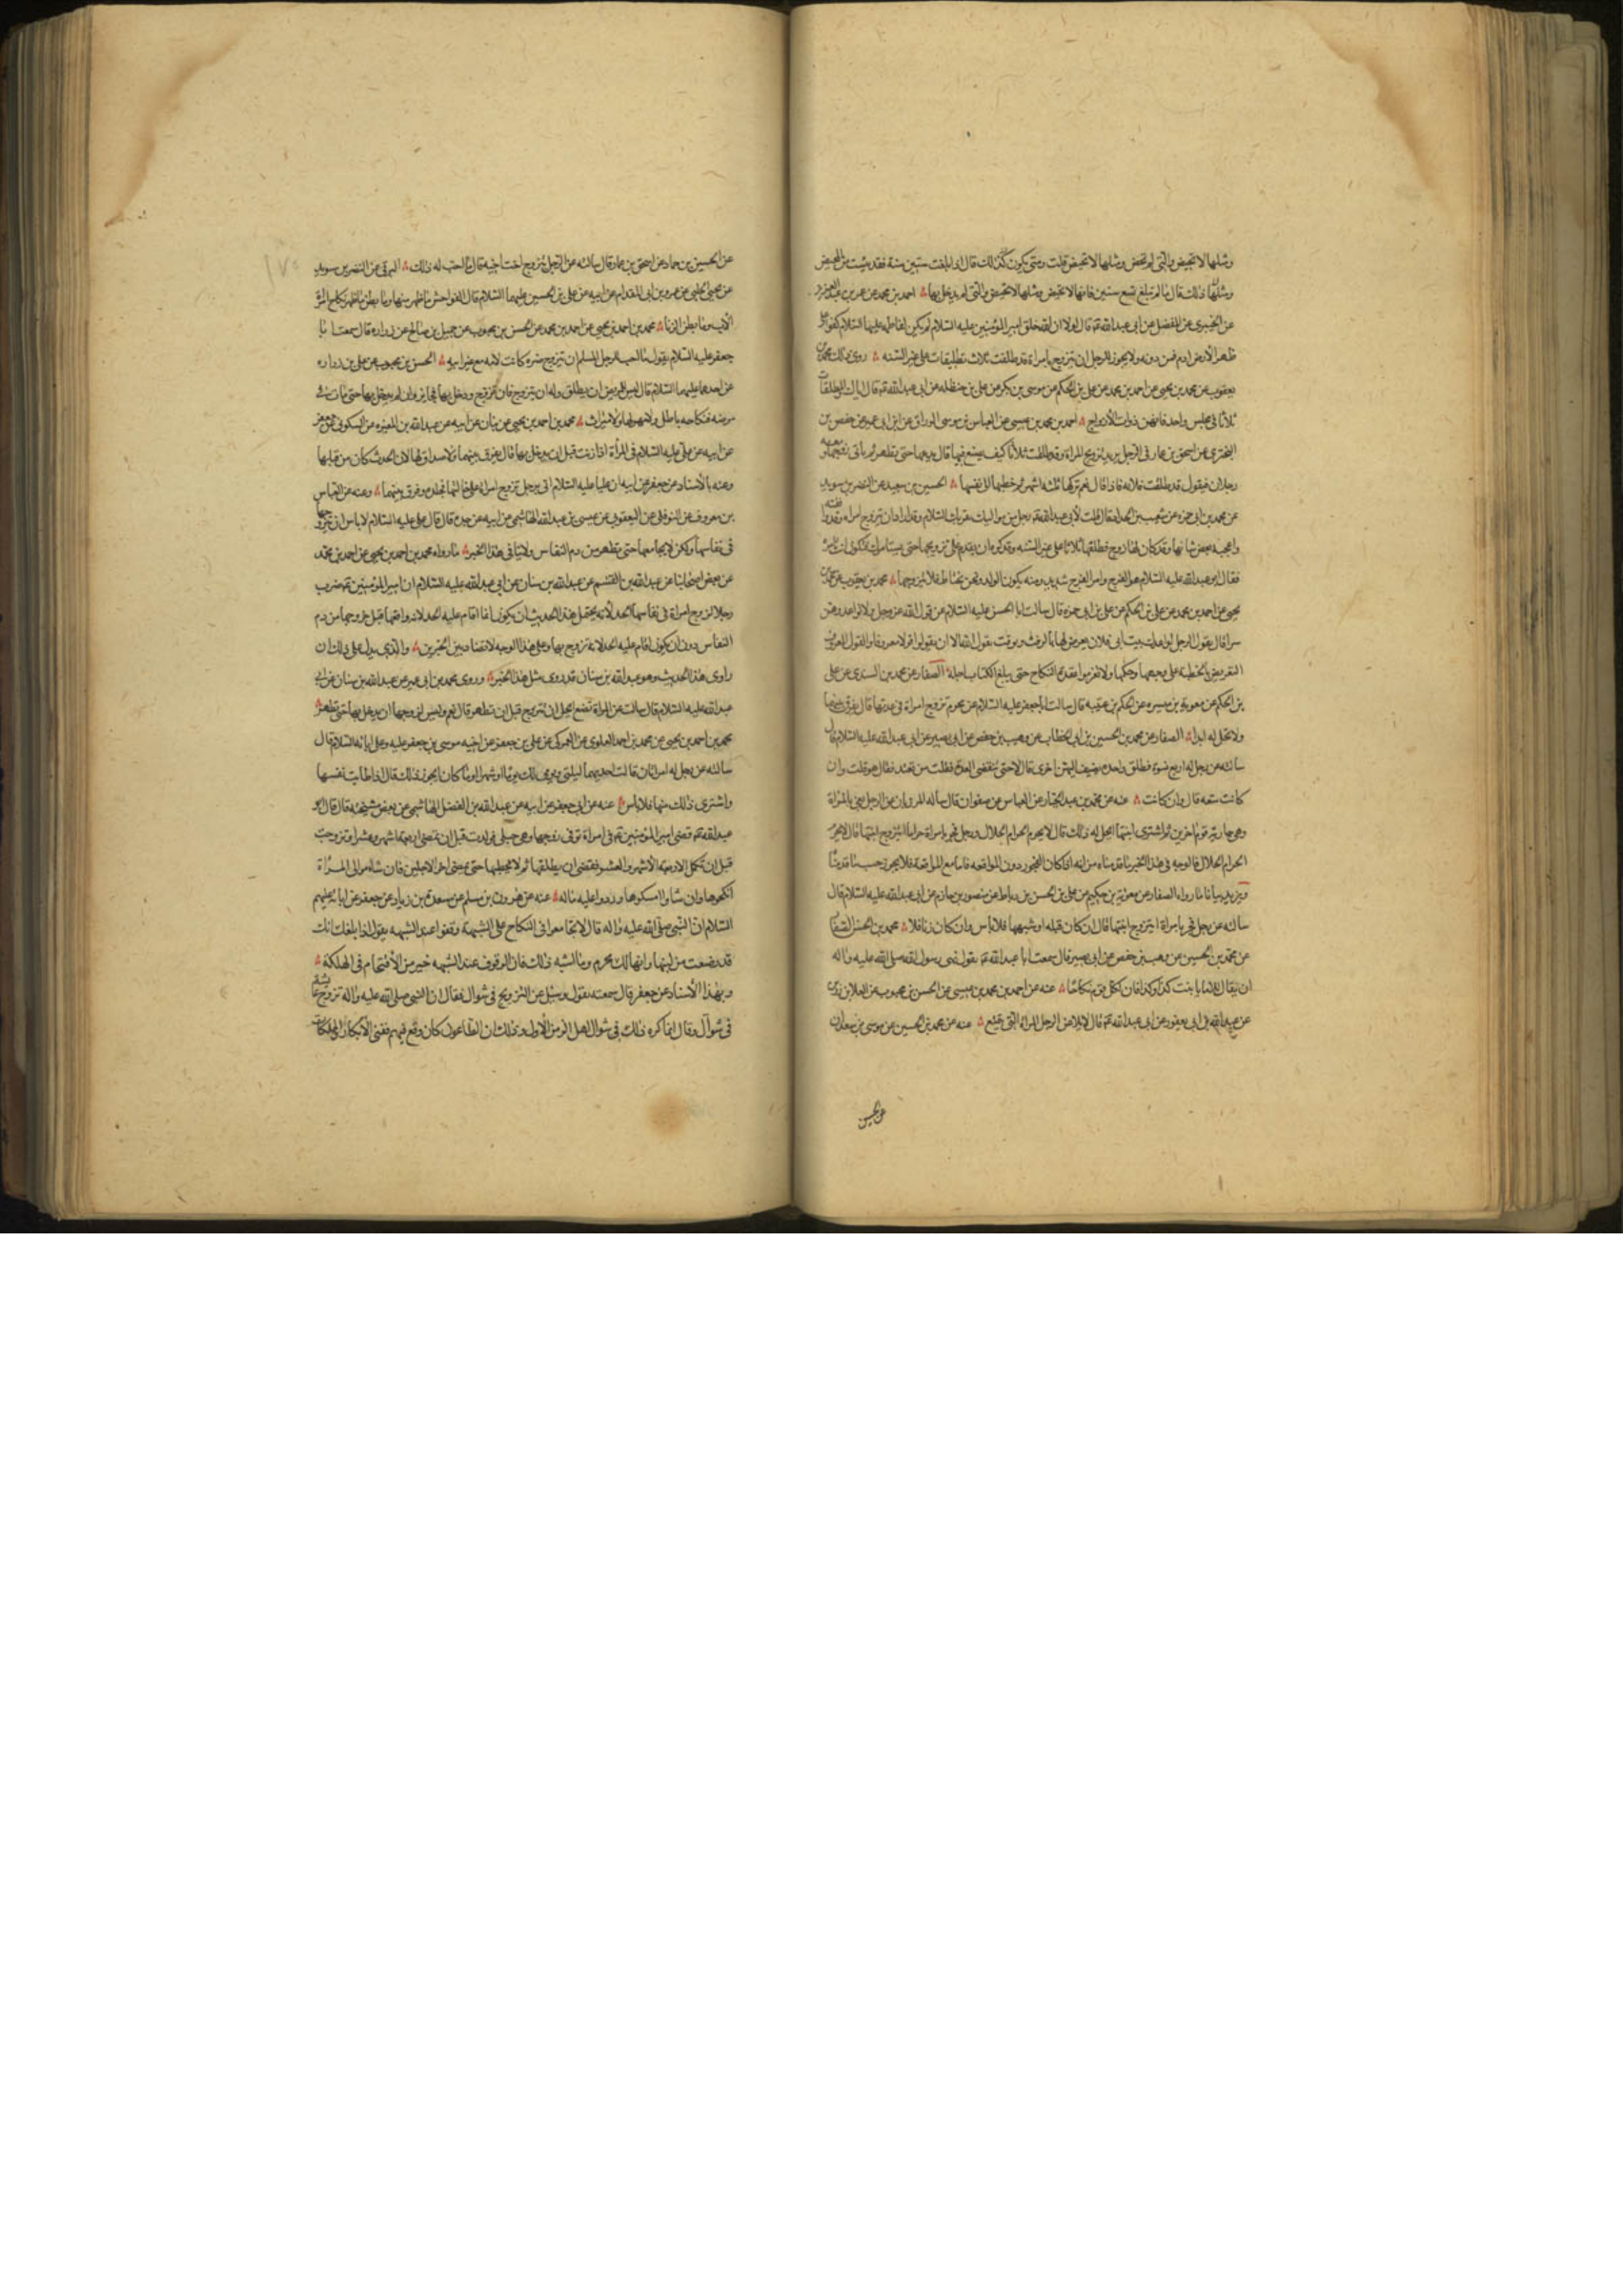 ومثلها لا تحيض والتي لم تحض ومثلها لا تحيض قلت ومتى يكون كذلك قال اذا بلغت ستين سنة فقد يئست من المحيض
ومثلها كذلك قال ما لم تبلغ تسع سنين فانها لا تحيض ومثلها لا تحيض والتي لم يدخل بها احمد بن محمد عن عمر بن عبد العزيز
عن الخيبري عن المفضل عن ابي عبد الله ع قال لولا ان الله خلق امير المؤمنين عليه السلام لم يكن لفاطمة عليها السلام كفو على
ظهر الارض ادم فمن دونه ولا يجوز للرجل ان يتزوج بامراة قد طلقت ثلاث تطليقات على غير السنه روى ذلك محمد بن
يعقوب عن محمد بن يحيى عن احمد بن محمد عن علي بن الحكم عن موسى بن بكر عن علي بن حنظله عن ابي عبد الله ع قال اياك والمطلقات
ثلاثا في مجلس واحد فانهن ذوات الازواج احمد بن محمد بن عيسى عن العباس بن موسى الوراق عن ابن ابي عمير عن حفص بن
البختري عن اسحق بن عمار في الرجل يريد تزويج المراة وقد طلقت ثلاثا كيف يصنع فيها قال يدعها حتى تطهر ثم ياتي زوجها ومعه
رجلان فيقول قد طلقت فلانه فاذا قال نعم تركها ثلثه اشهر ثم خطبها الى نفسها الحسين بن سعيد عن النضر بن سويد
عن محمد بن ابي حمزه عن شعيب الحداد قال قلت لابي عبد الله ع رجل من مواليك يقرئك السلام وقد اراد ان يتزوج امراه وقد وافقته
واعجبه بعض شانها وقد كان لها زوج فطلقها ثلاثا على غير السنه وقد كره ان يقدم على تزويجها حتى يستامرك فتكون انت تامره
فقال ابو عبد الله عليه السلام هو الفرج وامر الفرج شديد ومنه يكون الولد ونحن نحتاط فلا يتزوجها محمد بن يعقوب عن محمد بن
يحيى عن احمد بن محمد عن علي بن الحكم عن علي بن ابي حمزه قال سالت ابا الحسن عليه السلام عن قول الله عز وجل ولا تواعدوهن
سرا قال يقول الرجل اواعدك بيت ابي فلان يعرض لها بالرفث ويوقت يقول الله الا ان يقولوا قولا معروفا والقول المعروف
التعريض بالخطبة على وجهها وحكمها ولا تعزموا عقدة النكاح حتى يبلغ الكتاب اجله الصفار عن محمد بن السندي عن علي
بن الحكم عن معوية بن ميسره عن الحكم بن عتيبه قال سالت ابا جعفر عليه السلام عن محرم تزوج امراة في عدتها قال يفرق بينهما
ولا تحل له ابدا الصفار عن محمد بن الحسين بن ابي الخطاب عن وهيب بن حفص عن ابي بصير عن ابي عبد الله عليه السلام قال
سالته عن رجل له اربع نسوة فطلق واحده يضيف اليهن اخرى قال لا حتى تنقضي العدة فقلت من يعتد فقال هو قلت وان
كانت متعه قال وان كانت عنه عن محمد بن عبد الجبار عن العباس عن صفوان قال ساله المرزبان عن الرجل يفجر بالمراة
وهي جارية قوم اخرين ثم اشترى ابنتها ايحل له ذلك قال لا يحرم الحرام الحلال ورجل فجر بامراة حراما ايتزوج ابنتها قال لا يحرم
الحرام الحلال فالوجه في هذا الخبر ما قدمناه من انه اذا كان الفجور دون المواقعه فاما مع المواقعة فلا يجوز حسب ما قدمنا
ويزيد بيانا ما رواه الصفار عن معوية بن حكيم عن علي بن الحسن بن رباط عن منصور بن حازم عن ابي عبد الله عليه السلام قال
سالته عن رجل فجر بامراة ايتزوج ابنتها قال ان كان قبلة او شبهها فلا باس وان كان زنا فلا محمد بن الحسن الصفار
عن محمد بن الحسين عن وهيب بن حفص عن ابي بصير قال سمعت ابا عبد الله ع يقول نهى رسول الله صلى الله عليه واله
ان يقال للاماء يا بنت كذا وكذا فان لكل قوم نكاحا عنه عن احمد بن محمد بن عيسى عن الحسن بن محبوب عن العلا بن رزين
عن عبد الله بن ابي يعفور عن ابي عبد الله ع قال لا يلامس الرجل المراة التي يمتع عنه عن محمد بن الحسين عن موسى بن سعدان
عن الحسين
عن الحسين بن حماد عن اسحق بن عمار قال سالته عن الرجل يتزوج اخت اخيه قال ما احب له ذلك البرقي عن النضر بن سويد
عن يحيى الحلبي عن عمرو بن ابي المقدام عن ابيه عن علي بن الحسين عليهما السلام قال الفواحش ما ظهر منها وما بطن ما ظهر نكاح امراة
الاب وما بطن الزنا محمد بن احمد بن يحيى عن احمد بن محمد عن الحسن بن محبوب عن جميل بن صالح عن زراره قال سمعت ابا
جعفر عليه السلام يقول ما احب للرجل المسلم ان يتزوج ضره كانت لامه مع غير ابيه الحسن بن محبوب عن علي بن زراره
عن احدهما عليهما السلام قال ليس للمريض ان يطلق وله ان يتزوج فان تزوج ودخل بها فجايز وان لم يدخل بها حتى مات في
مرضه فنكاحه باطل ولا مهر لها ولا ميراث محمد بن احمد بن يحيى عن بنان عن ابيه عن عبد الله بن المغيره عن السكوني عن جعفر
عن ابيه عن علي عليه السلام في المراة اذا زنت قبل ان يدخل بها قال يفرق بينهما ولا صداق لها لان الحدث كان من قبلها
وعنه بالاسناد عن جعفر عن ابيه ان عليا عليه السلام اتي برجل تزوج امراة على خالتها فجلده وفرق بينهما وعنه عن العباس
بن معروف عن النوفلي عن اليعقوبي عن عيسى بن عبد الله الهاشمي عن ابيه عن جده قال قال علي عليه السلام لا باس ان يتزوجها
في نفاسها ولكن لا يجامعها حتى تطهر من دم النفاس ولا ينافي هذا الخبر ما رواه محمد بن احمد بن يحيى عن احمد بن محمد
عن بعض اصحابنا عن عبد الله بن القسم عن عبد الله بن سنان عن ابي عبد الله عليه السلام ان امير المؤمنين ع ضرب
رجلا تزوج امراة في نفاسها الحد لانه يحتمل هذا الحديث ان يكون انما اقام عليه الحد لانه واقعها قبل خروجها من دم
النفاس دون ان يكون اقام عليه الحد لانه تزوج بها وعلى هذا الوجه لا تضاد بين الخبرين والذي يدل على ذلك ان
راوي هذا الحديث وهو عبد الله بن سنان قد روى مثل هذا الخبر وروى محمد بن ابي عمير عن عبد الله بن سنان عن ابي
عبد الله عليه السلام قال سالت عن المراة تضع ايحل ان تتزوج قبل ان تطهر قال نعم وليس لزوجها ان يدخل بها حتى تطهر
محمد بن احمد بن يحيى عن محمد بن احمد العلوي عن العمركي عن علي بن جعفر عن اخيه موسى بن جعفر عليه وعلى ابائه السلام قال
سالته عن رجل له امراتان قالت احديهما ليلتي ويومي لك يوما او شهرا او ما كان ايجوز ذلك قال اذا طابت نفسها
واشترى ذلك منها فلا باس عنه عن ابي جعفر عن ابيه عن عبد الله بن الفضل الهاشمي عن بعض مشيخته قال قال ابو
عبد الله ع قضى امير المؤمنين ع في امراة توفي زوجها وهي حبلى فولدت قبل ان تمضي اربعة اشهر وعشرا وتزوجت
قبل ان تكمل الاربعة الاشهر والعشر فقضى ان يطلقها ثم لا يخطبها حتى يمضي اخر الاجلين فان شاء موالي المراة
انكحوها وان شاوا امسكوها وردوا عليه ماله عنه عن هرون بن مسلم عن مسعدة بن زياد عن جعفر عن ابائه عليهم
السلام ان النبي صلى الله عليه واله قال لا تجامعوا في النكاح على الشبهة وقفوا عند الشبهه يقول اذا بلغك انك
قد رضعت من لبنها وانها لك محرم وما اشبه ذلك فان الوقوف عند الشبهه خير من الاقتحام في الهلكة
وبهذا الاسناد عن جعفر قال سمعته يقول وسئل عن التزويج في شوال فقال ان النبي صلى الله عليه واله تزوج عايشة
في شوال وقال انما كره ذلك في شوال اهل الزمن الاول وذلك ان الطاعون كان وقع فيهم ففنى الابكار والمملكات